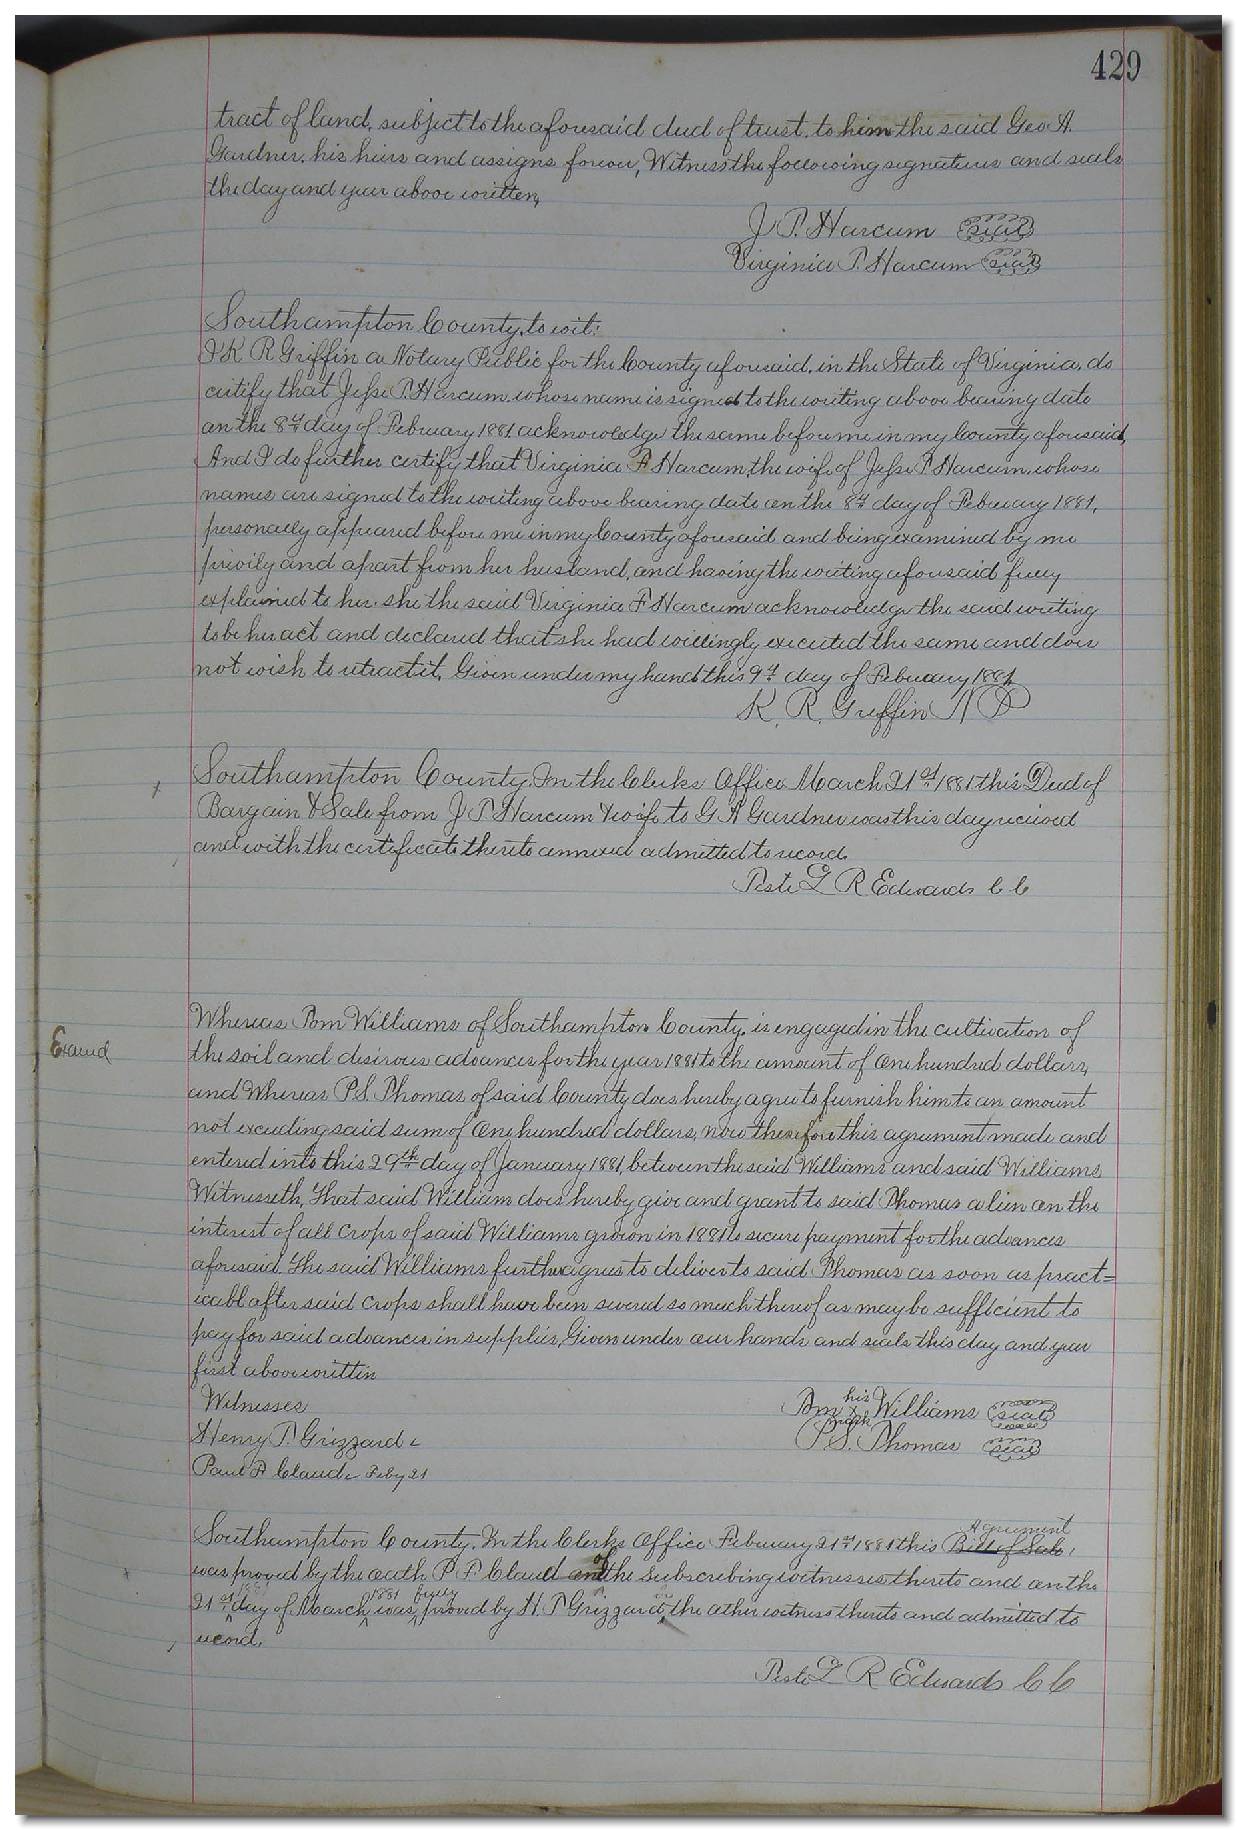 429
tract of land, subject to the aforesaid deed of trust, to him the said Geo A.
Gardner, his heirs and assigns forever, Witness the following signatures and seals
the day and year above written,
J P. Harcum seal
Virginia P. Harcum seal
Southampton County, to wit:
I K R Griffin a Notary Public for the County aforesaid, in the State of Virginia, do
certify that Jesse P. Harcum whose name is signed to the writing above bearing date
on the 8th day of February 1881 acknowledge the same before me in my County aforesaid,
And I do further certify that Virginia F Harcum, the wife of Jesse P Harcum, whose
names are signed to the writing above bearing date on the 8th day of February 1881,
personally appeared before me in my County aforesaid and being examined by me
privily and apart from her husband, and having the writing aforesaid fully
explained to her, she the said Virginia F Harcum acknowledge the said writing
to be her act and declared that she had willingly executed the same and does
not wish to retract it, Given under my hand this 9th day of February 1881
K. R. Griffin N P
Southampton County, In the Clerks Office March 21st 1881 this Deed of
Bargain & Sale from J P Harcum & wife to G A Gardner was this day received
and with the certificate thereto annexed admitted to record.
Teste L R Edwards C C
Whereas Pom Williams of Southampton County, is engaged in the cultivation of
Examd
the soil and desirous advances for the year 1881 to the amount of One hundred dollars,
and Whereas P.S. Thomas of said County does hereby agree to furnish him to an amount
not exceeding said sum of One hundred dollars, now therefore this agreement made and
entered into this 29th day of January 1881, between the said Williams and said Williams,
Witnesseth, That said William does hereby give and grant to said Thomas a lien on the
interest of all Crops of said Williams grown in 1881 to secure payment for the advances
aforesaid. The said Williams further agrees to deliver to said Thomas as soon as pract=
icabl after said Crops shall have been severed so much thereof as may be sufficient to
pay for said advances in supplies, Given under our hands and seals this day and year
first above written
Witnesses
his
Pom x Williams seal
mark
Henry T. Grizzard
P.S. Thomas seal
Paul F Claud Feby 21
Agreement
Southampton County, In the Clerks Office February 21st 1881 this Bill of Sale,
was proved by the oath P. F. Claud one of the subscribing witnesses thereto and on the
21st day of March 1881 was fully proved by H. T Grizzard, the other witness thereto and admitted to
record.
Teste L R Edwards C C